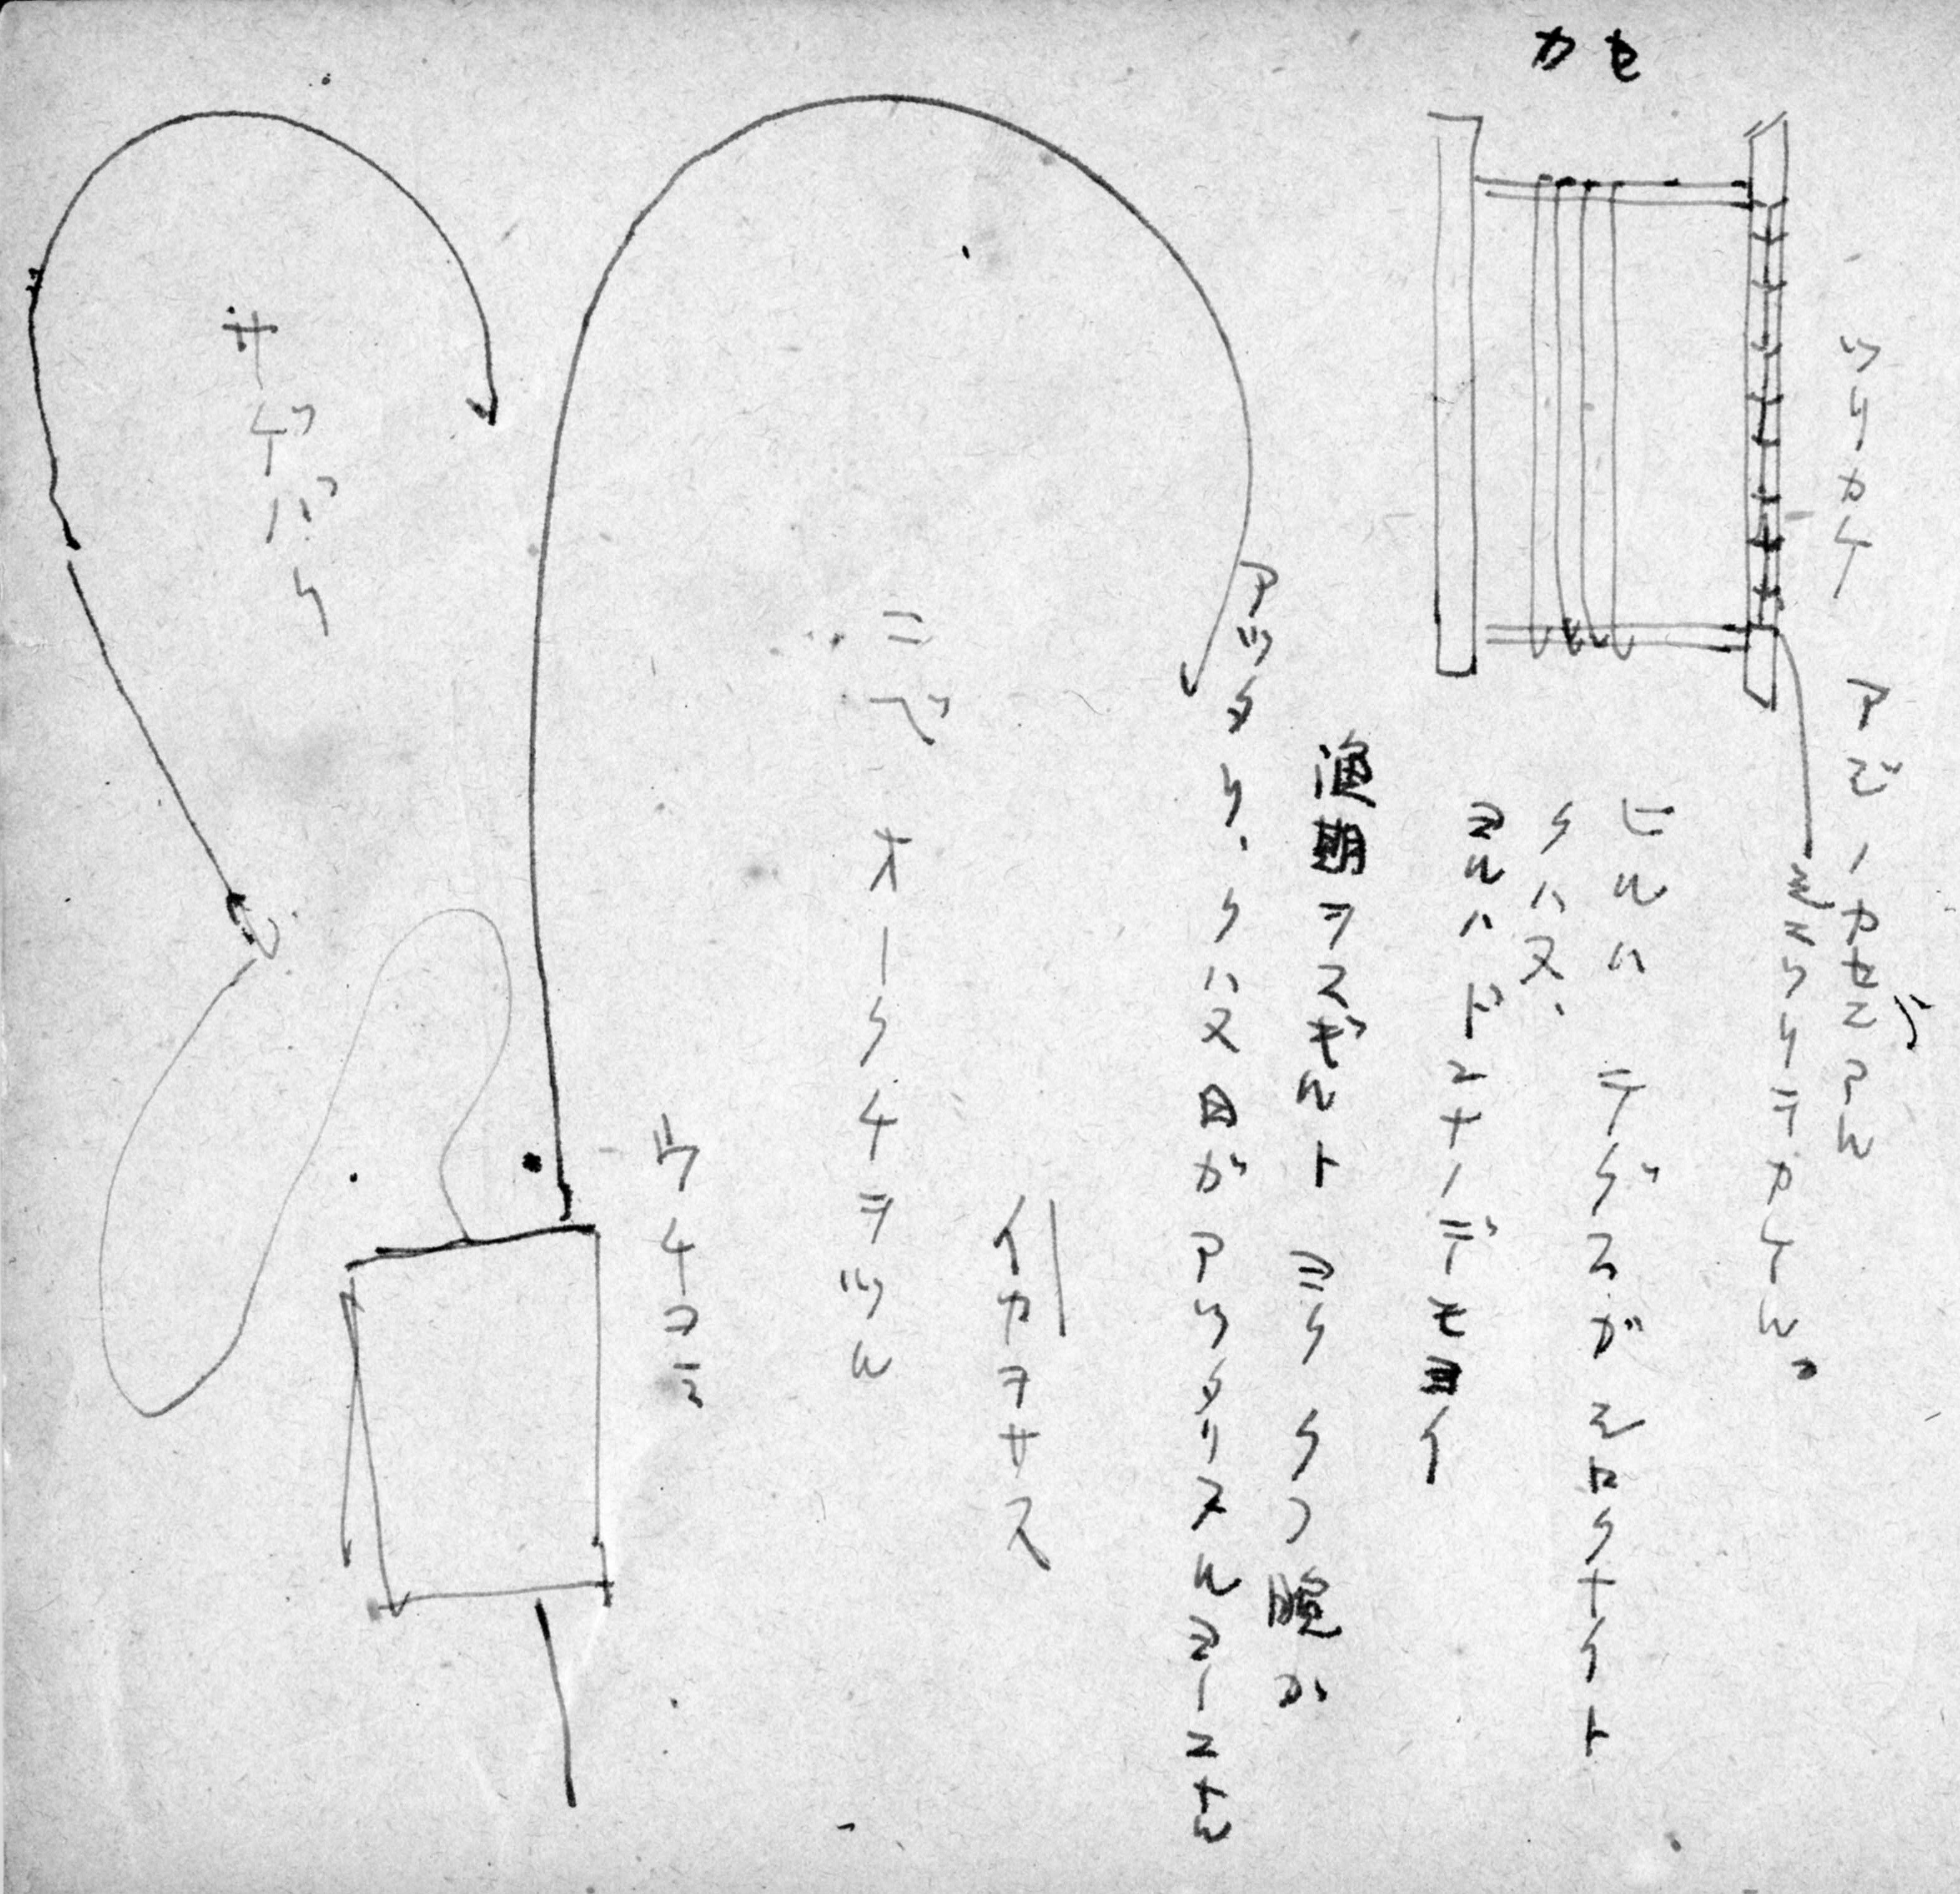 カセ
ツリカケ
アミノカセニアル
ミゾクリテカケル。
ヒルハ テグスガシロクナイト
クハヌ、
ヨルハドンナノデモヨイ
漁期ヲスギルト ヨク クフ腕が
アッタリ、クハヌ日ガアッタリスルヨーニナル
イカヲサス
ニペ オークチヲツル
ウチコミ
サゲバリ